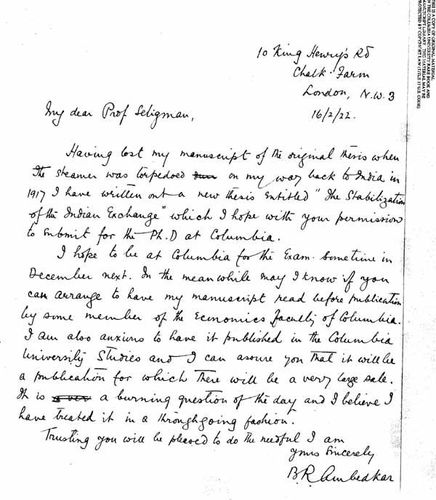 10 King Henry's Rd
Chalk Farm
London, N.W.3
16/2/22.
My dear Prof Seligman,
Having lost my manuscript of the original thesis when
the steamer was torpedoed on my way back to India in
1917 I have written out a new thesis entitled "The Stabilization
of the Indian Exchange" which I hope with your permission
to submit for the Ph.D at Columbia.
I hope to be at Columbia for the Exam. sometime in
December next. In the meanwhile may I know if you
can arrange to have my manuscript read before publication
by some member of the Economics faculty of Columbia.
I am also anxious to have it published in the Columbia
University Studies and I can assure you that it will be
a publication for which there will be a very large sale.
It is a burning question of the day and I believe I
have treated it in a throughgoing fashion.
Trusting you will be pleased to do the needful I am
yours Sincerely
B.R. Ambedkar